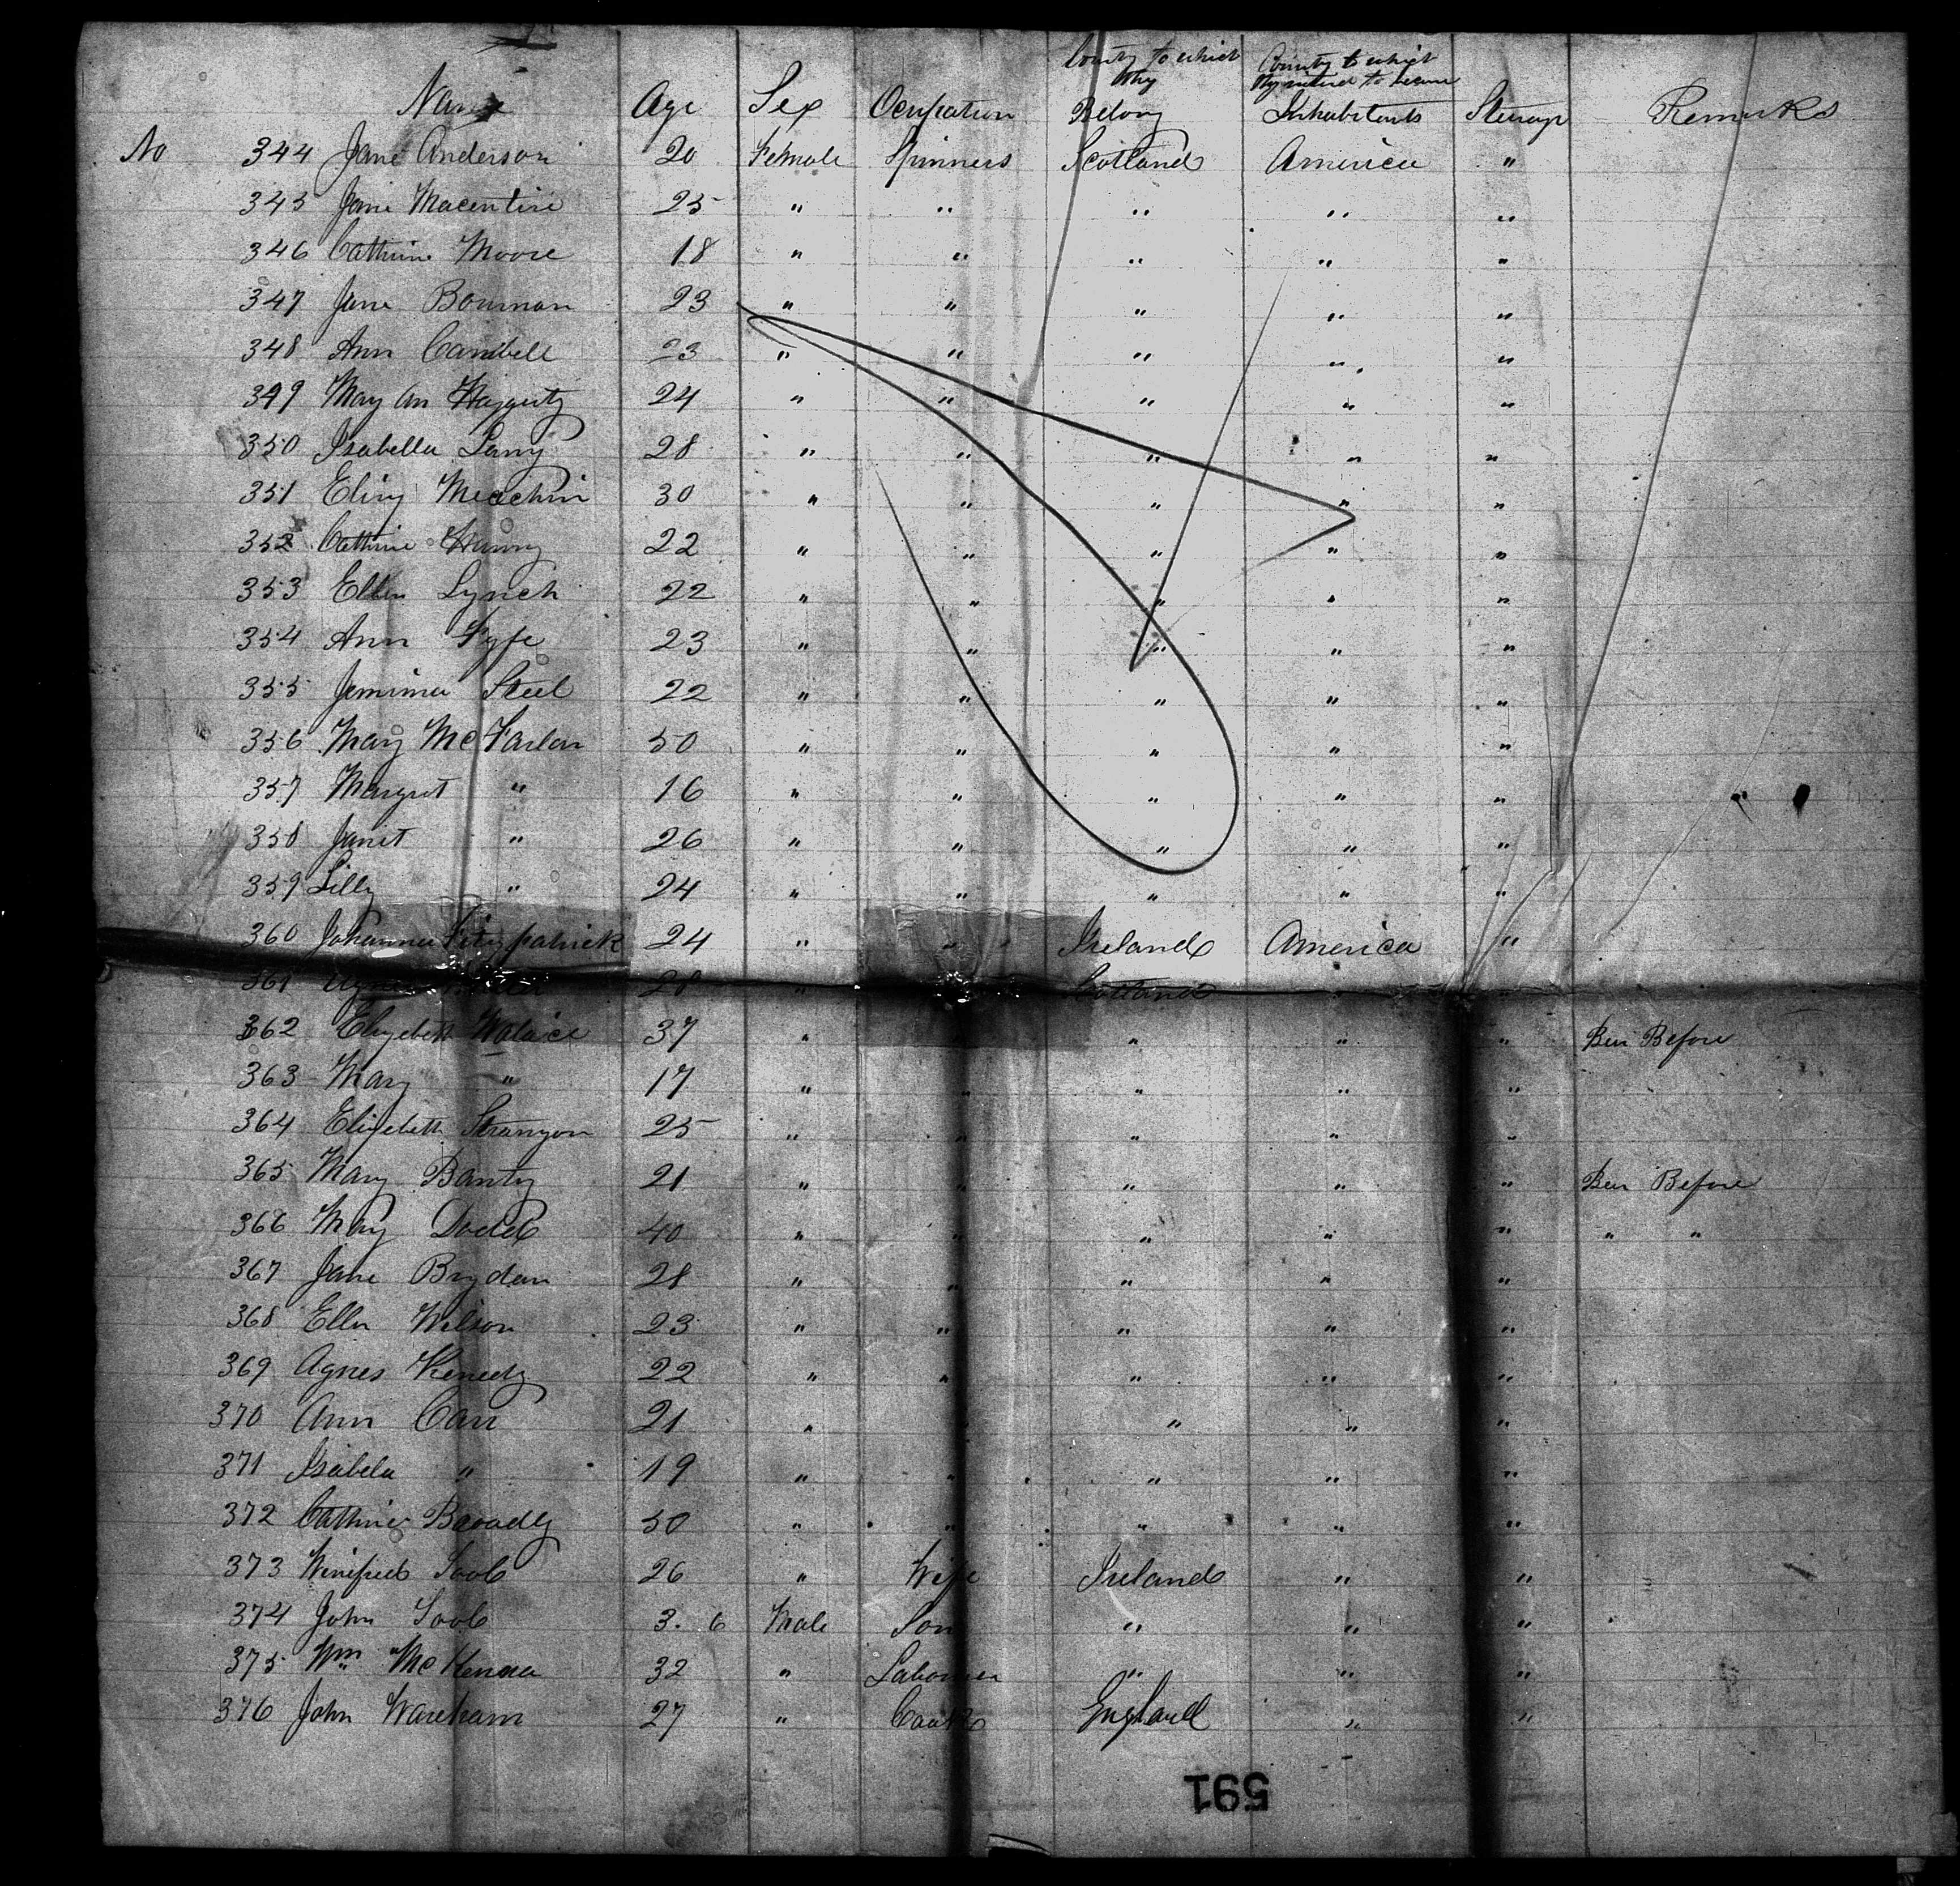 County to which County to which
they they intend to become
Name Age Sex Ocupation Belong Inhabitants Steurage Remarks
No 344 Jane Anderson 20 Female Spinners Scotland America "
345 Jane Macentire 25 " " " " "
346 Cathrine Moore 18 " " " " "
347 Jane Bowman 23 " " " " "
348 Ann Cambell 23 " " " " "
349 Mary An Haggerty 24 " " " " "
350 Isabella Lang 28 " " " " "
351 30 " " " " "
352 Cathrine 22 " " " " "
353 Ellen Lynch 22 " " " " "
354 Ann Fyfe 23 " " " " "
355 Jemima Steel 22 " " " " "
356 Mary McFarlan 50 " " " " "
357 Margret " 16 " " " " "
358 Janet " 26 " " " " "
359 Lilly " 24 " " " " "
360 Johanna Fitzpatrick 24 " " Ireland America "
361 28 " Scotland " "
362 Elizebeth Walaice 37 " " " " Ben Before
363 Mary " 17 " " " " "
364 Elizebeth 25 " " " " "
365 Mary Banty 21 " " " " " Ben Before
366 Mary Dodd 40 " " " " " " "
367 Jane Brydan 28 " " " " "
368 Ellen Wilson 23 " " " " "
369 Agnes Kenedy 22 " " " " "
370 Ann Carr 21 " " " "
371 Isabela " 19 " " " " "
372 Cathrine 50 " " " " "
373 Winifred 26 " Wife Ireland " "
374 John 3. 6 Male Son " " "
375 Wm McKenna 32 " Labourer " " "
376 John Wareham 27 " England " "
591